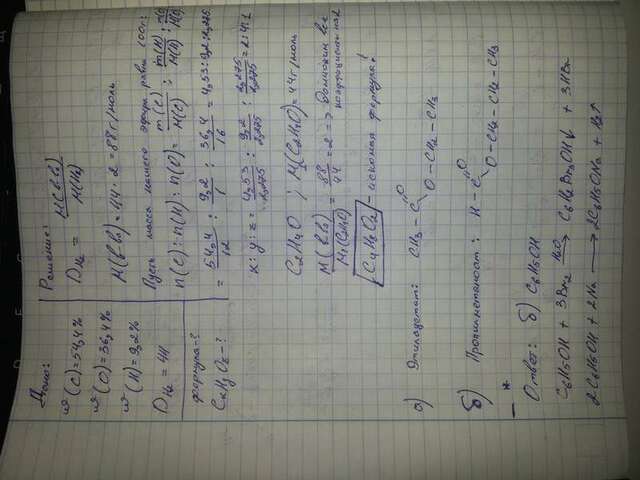 Дано:
ω(C)=54,4%
ω(O)=36,4%
ω(H)=9,2%
D H2 = 44
формула-?
CxHyOz-?
Решение:
D H2 = M(в.в) / M(H2)
M(в.в)=44·2=88г/моль
Пусть масса нашего эфира равна 100г.
n(C):n(H):n(O)= m(C)/M(C) : m(H)/M(H) : m(O)/M(O)
= 54,4/12 : 9,2/1 : 36,4/16 = 4,53:9,2:2,275
x:y:z = 4,53/2,275 : 9,2/2,275 : 2,275/2,275 = 2:4:1
C2H4O ; M(C2H4O)=44г/моль
M(в.в)/M(C2H4O) = 88/44 = 2 => Домножим все коэффициенты на 2
C4H8O2 - искомая формула!
а) Этилацетат: CH3-C=O
O-CH2-CH3
б) Пропилметаноат: H-C=O
O-CH2-CH2-CH3
Ответ: б) C6H5OH
C6H5OH + 3Br2 H2O→ C6H2Br3OH↓ + 3HBr
2C6H5OH + 2Na → 2C6H5ONa + H2↑